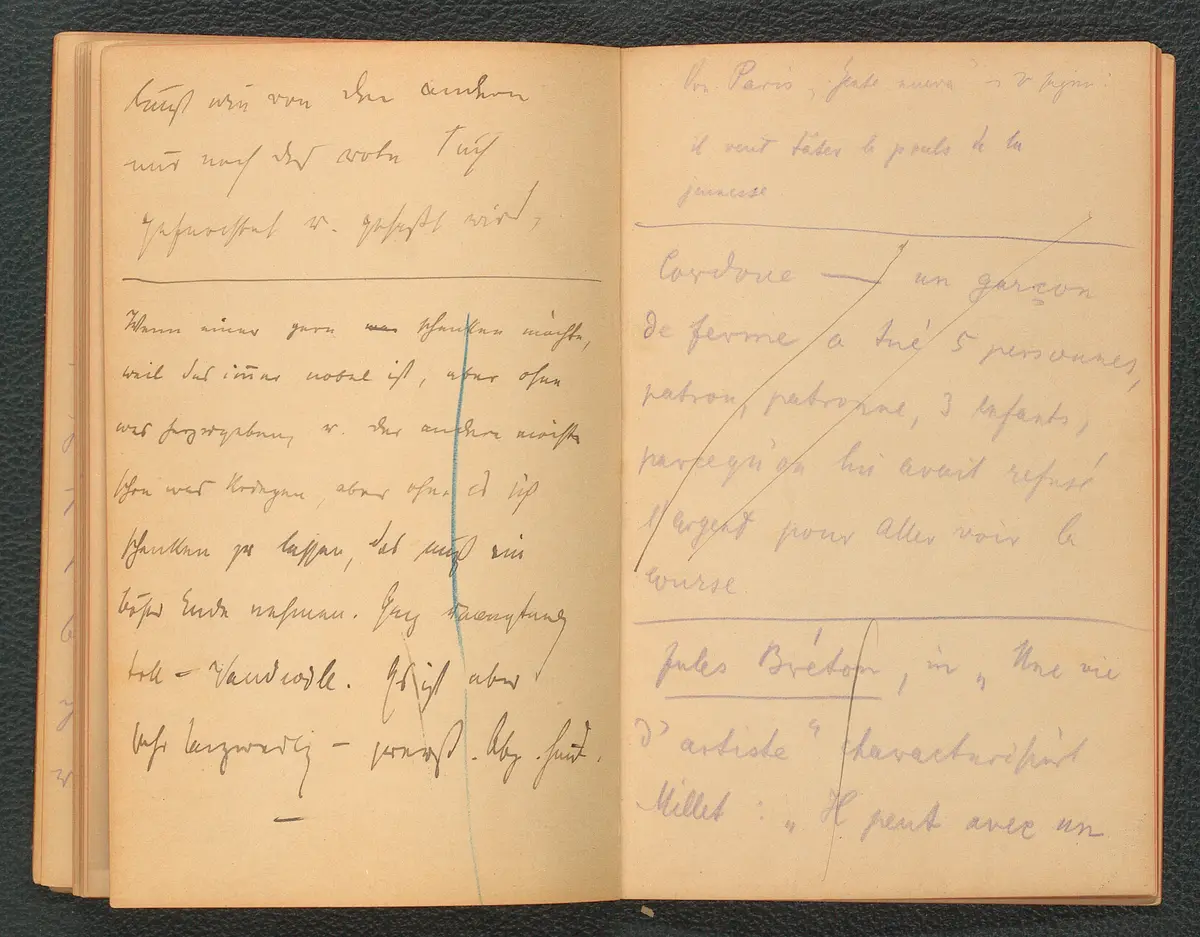 wie von den andern
nur nach das rote Tuch
gefürchtet u. gehaßt wird,
Wenn einer gern was schenken möchte,
weil das immer nobel ist, aber ohne
was herzugeben, u. der andere möchte
schon was kriegen, aber ohne es sich
schenken zu lassen, das muß ein
böses Ende nehmen.
toll – Vaudeville. Es ist aber
sehr –
Paris
il veut tâter le pouls de la
jeunesse.
Cordoue — un garçon
de ferme a tué 5 personnes,
patron, patronne, 3 enfants,
parcequ'on lui avait refusé
l'argent pour aller voir la
course
Jules Bréton, in „Une vie
d'artiste" charakterisirt
Millet : „Il peut avec un